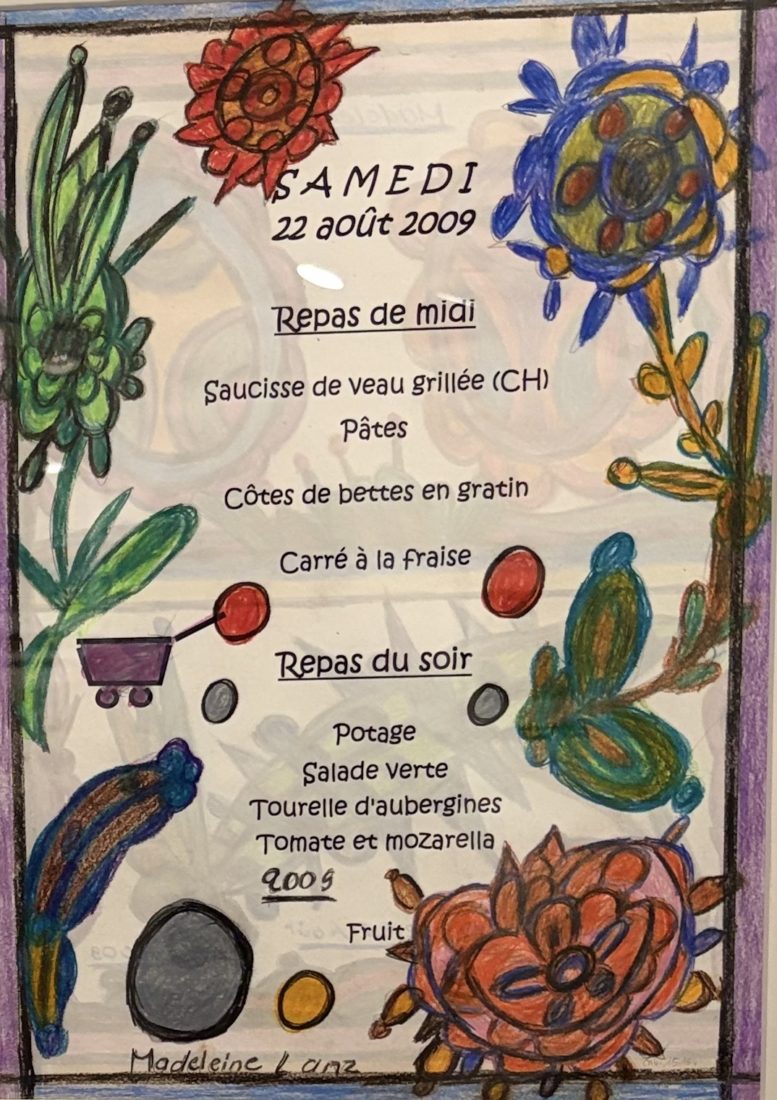 SAMEDI
22 août 2009
Repas de midi
Saucisse de veau grillée (CH)
Pâtes
Côtes de bettes en gratin
Carré à la fraise
Repas du soir
Potage
Salade verte
Tourelle d'aubergines
Tomate et mozarella
2009
Fruit
Madeleine Lanz